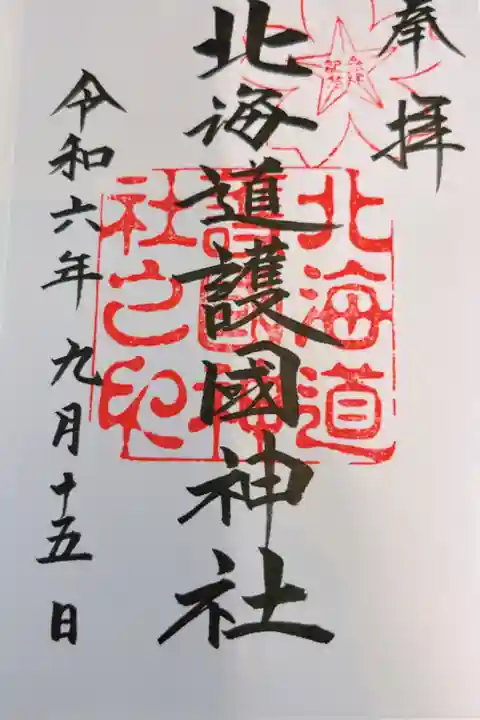 奉拝
北海道護國神社
令和六年九月十五日
北海道
護國神
社之印